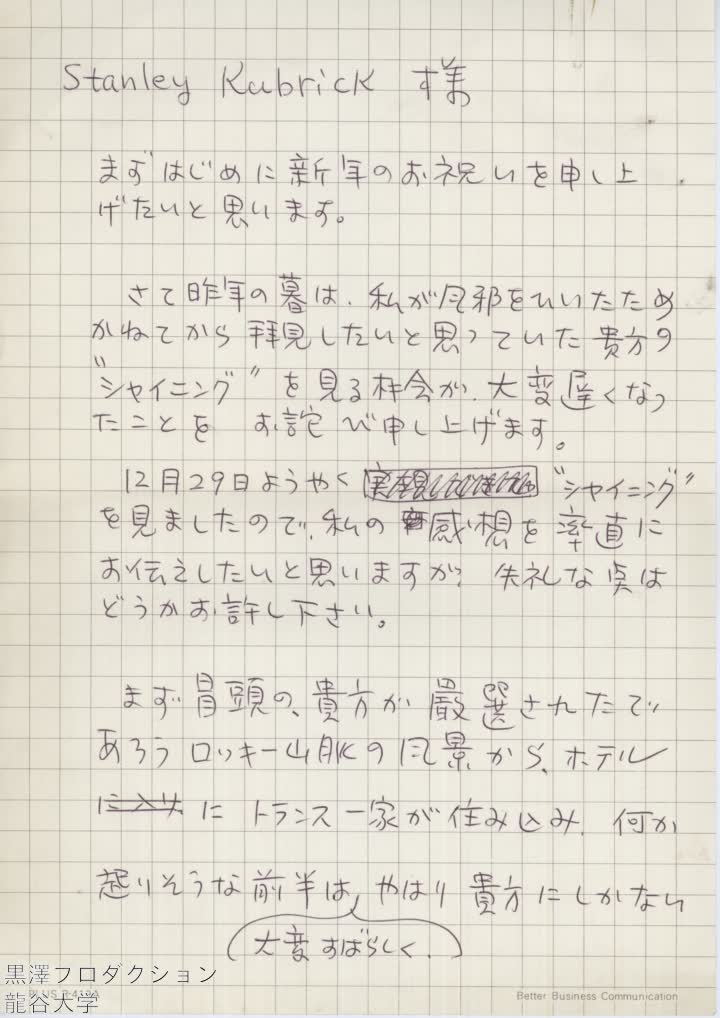 Stanley Kubrick 様
まずはじめに新年のお祝いを申し上
げたいと思います。
さて昨年の暮は、私が風邪をひいたため
かねてから拝見したいと思っていた貴方の
"シャイニング"を見る機会が、大変遅くなっ
たことを お詫び申し上げます。
12月29日ようやく "シャイニング"
を見ましたので、私の感想を率直に
お伝えしたいと思いますが、失礼な点は
どうかお許し下さい。
まず冒頭の、貴方が厳選されたで
あろうロッキー山脈の風景から、ホテル
にトランス一家が住み込み、何か
起りそうな前半は、やはり貴方にしかない
大変すばらしく、
黒澤プロダクション
龍谷大学
Better Business Communication